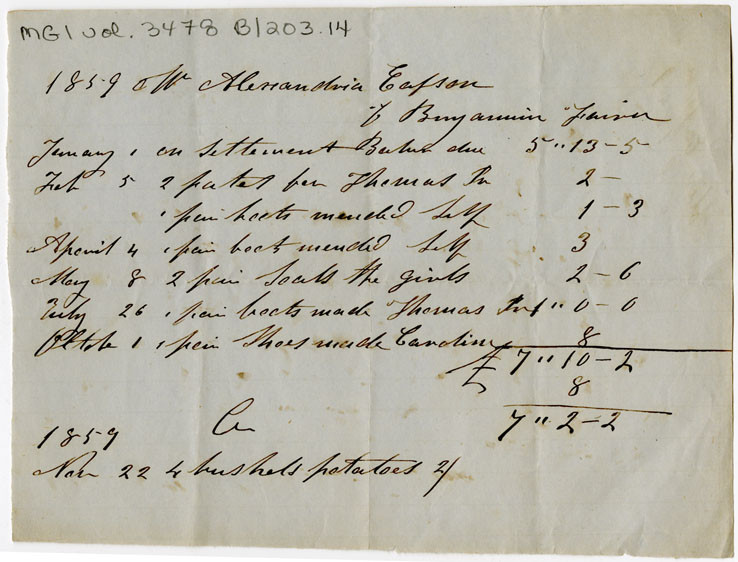 MG1 vol. 3478 B/203.14
1859 Mr Alexandria
Benjamin
January 1 on settement due 5 " 13 - 5
Feb 5 2 Thomas 2 -
1 pair boots mended Self 1 - 3
Aperil 4 1 pair boots mended Self 3
May 8 2 pair Soalls the girls 2 - 6
July 26 1 pair boots made Thomas 1 " 0 - 0
1 1 pair Shoes made Caroline 8
£ 7 " 10 - 2
8
7 " 2 - 2
1859 Cr
Nov 22 4 bushels potatoes 2/